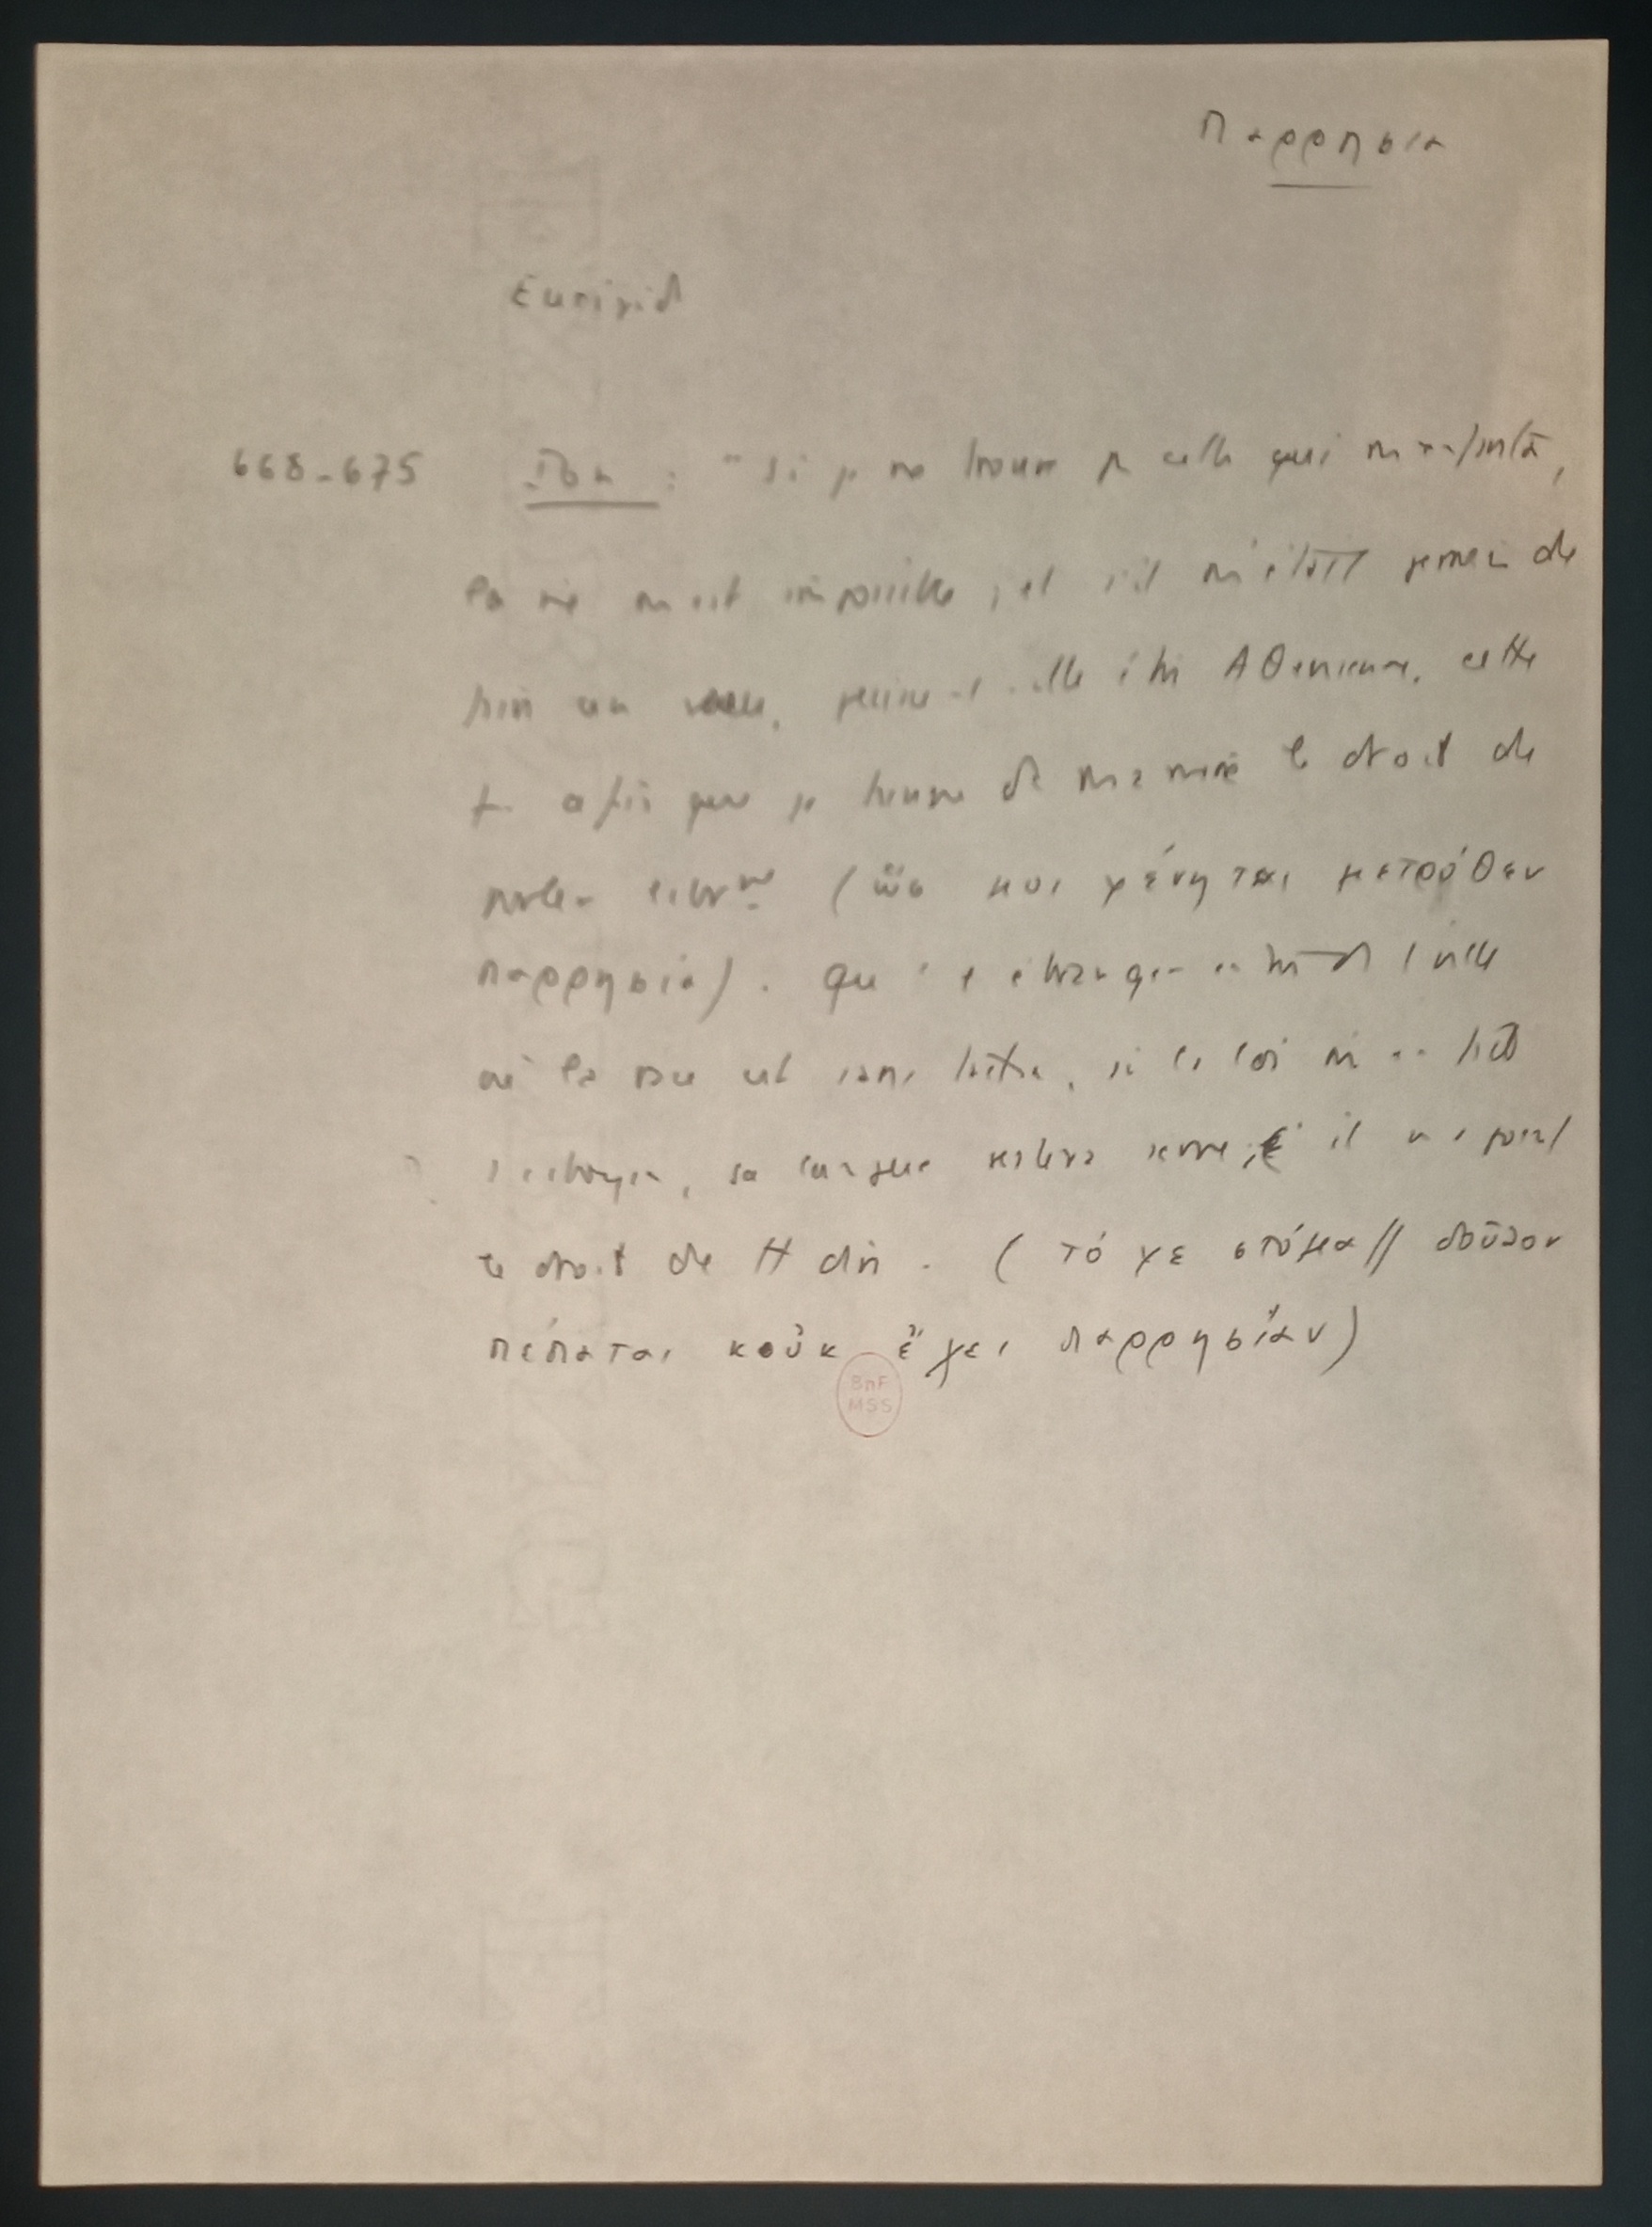 παρρησια
Euripid
668-675 Ion : " Si je ne trouve pas celle qui m'a enfanté,
la vie m'est impossible ; et s'il m'était permis de
faire un vœu, puisse-t-elle être Athénienne, cette
f. afin que je tienne de ma mère le droit de
parler librmt (ὥς μοι γένηται μητρόθεν
παρρησία). Qu'un étranger entre ds 1 ville
où la race est sans tache, si la loi en fait
1 citoyen, sa langue restera serve, il n'a pas
le droit de tt dire. (τό γε στόμα // δοῦλον
πέπαται κοὐκ ἔχει παρρησίαν)
BnF
MSS